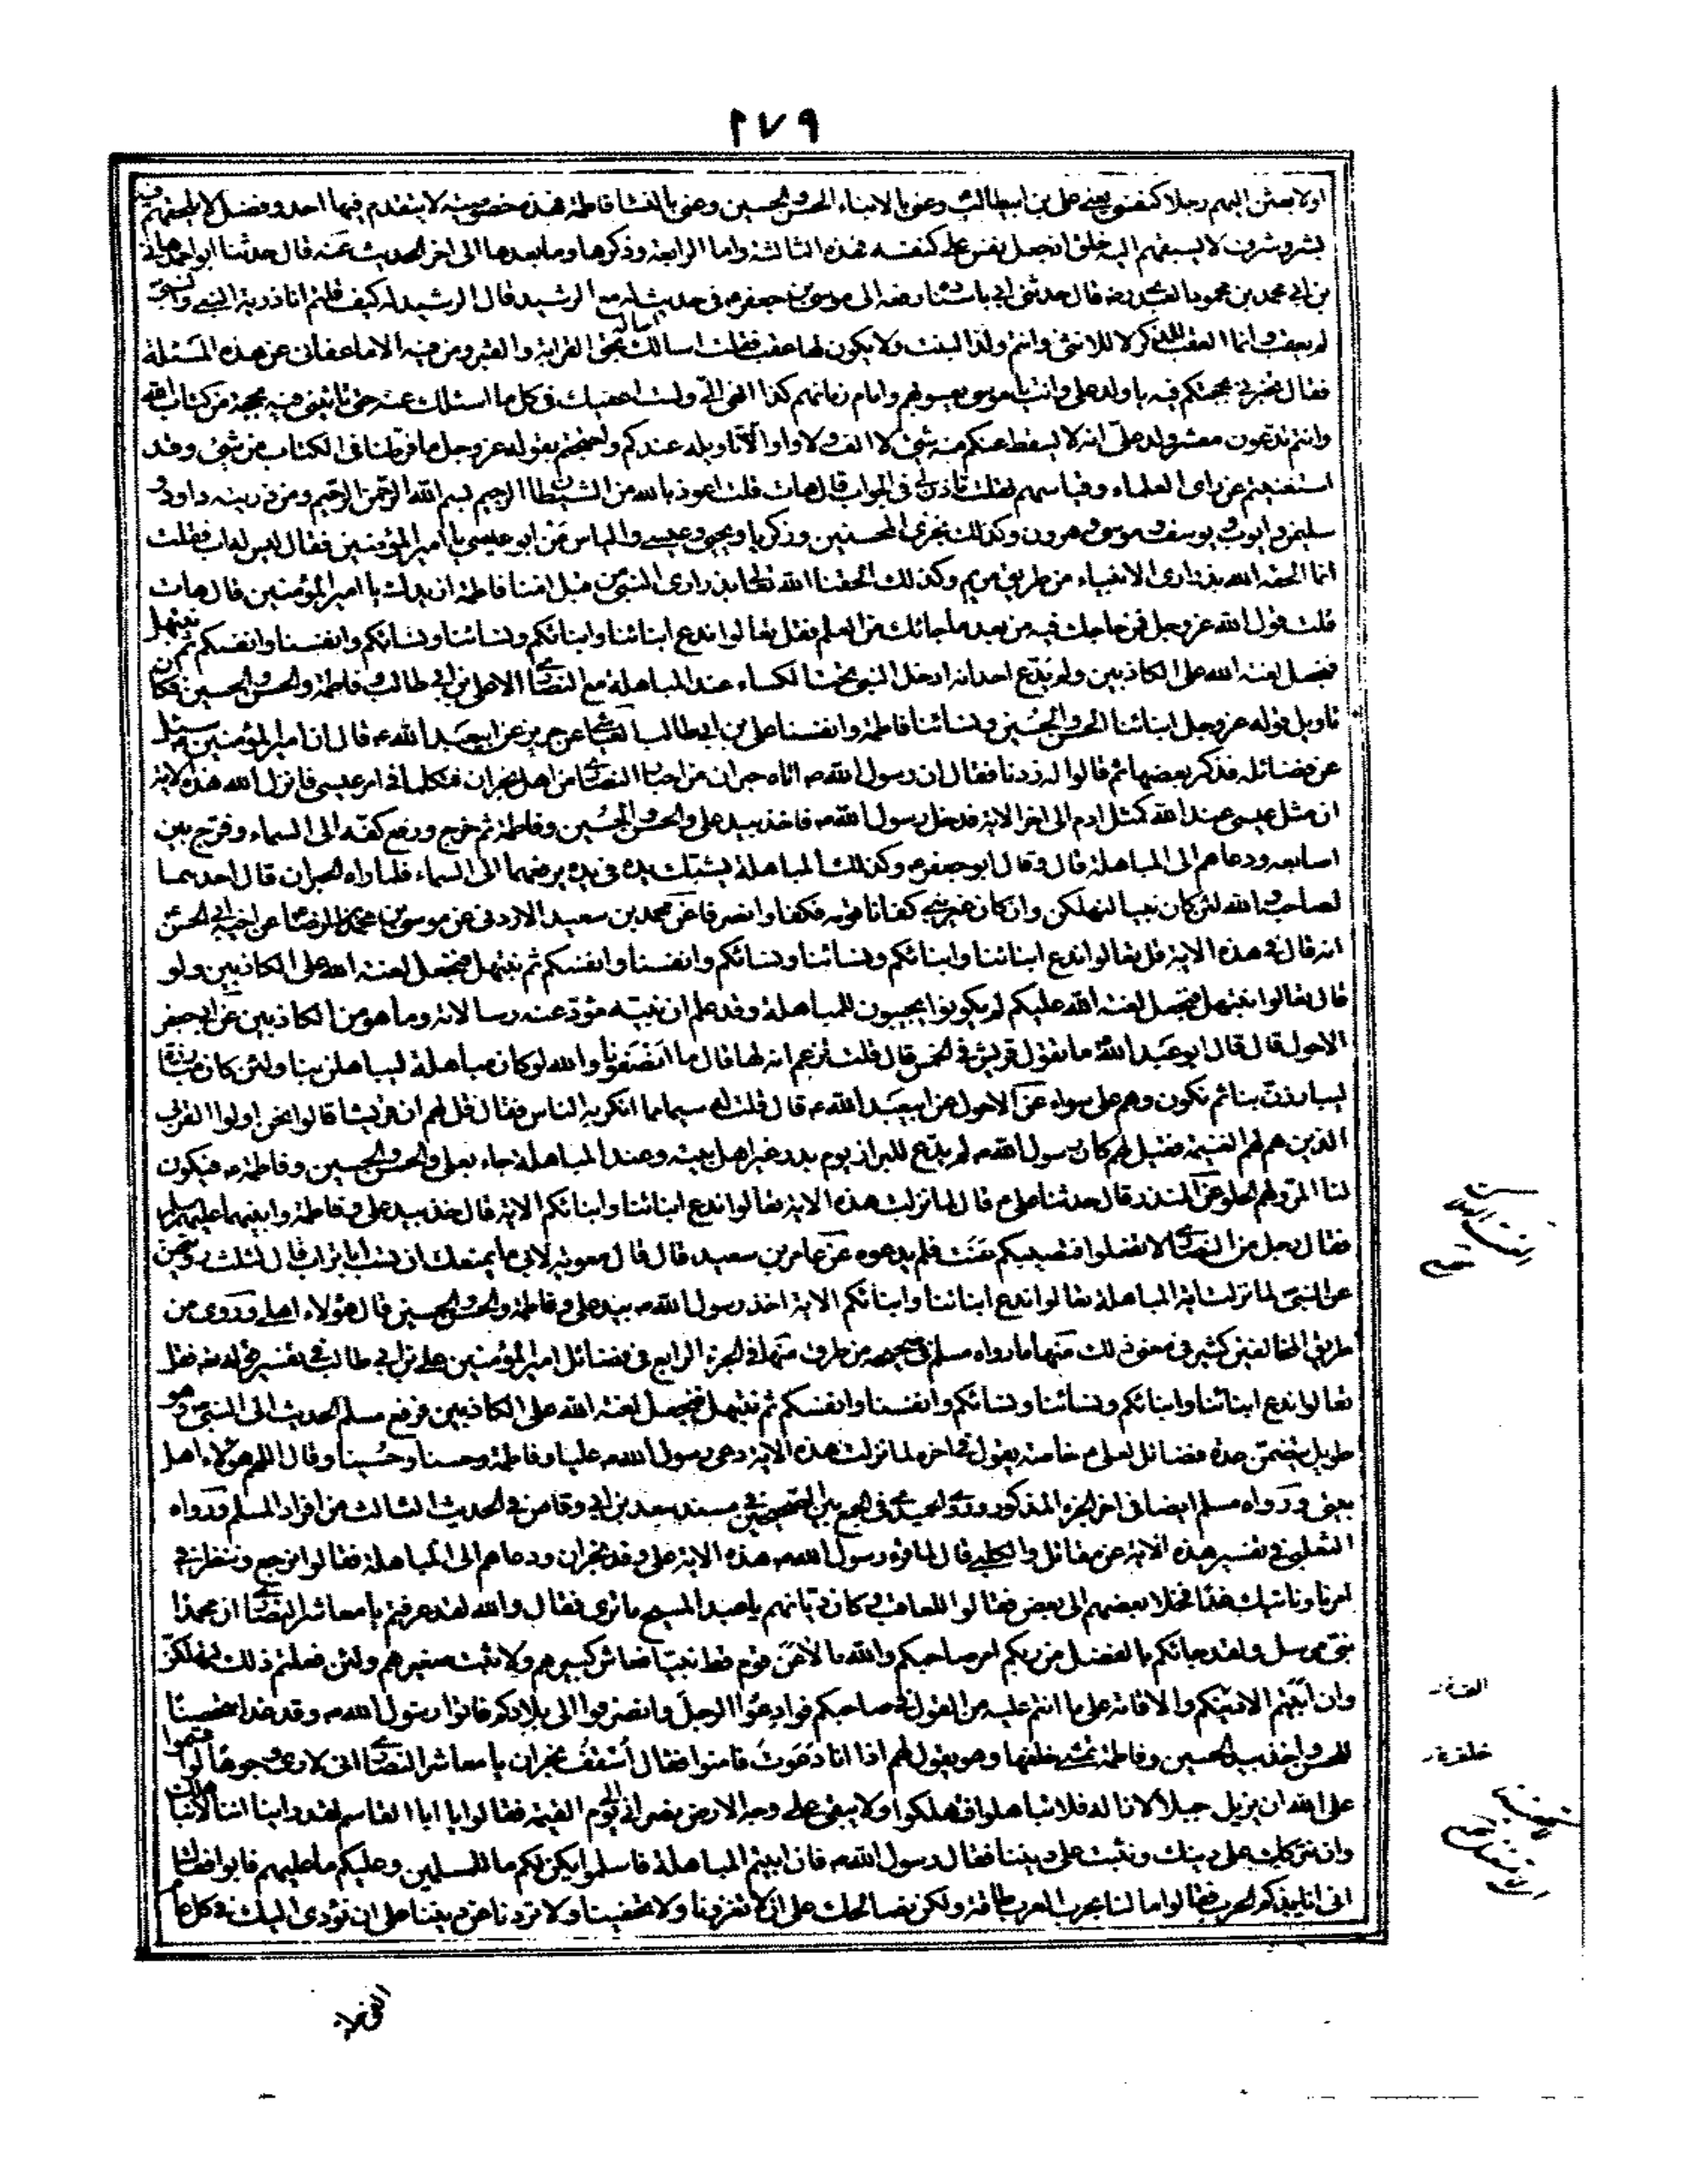 ٢٧٩
اولابعثن اليهم رجلا كنفسى يعنى على بن ابيطالب وعنى بالابناء الحسن والحسين وعنى بالنساء فاطمة فهذه خصوصية لا يتقدم فيها احد وفضل لا يلحقهم فيه
بشر وشرف لا يسبقهم اليه خلق ان جعل نفس على كنفسه فهذه الثالثة واما الرابعة وذكرها وما بعدها الى اخر الحديث عنه قال حدثنا ابو احمد هانى
بن ابى محمد بن محمود العبدى رضه قال حدثنى ابى باسناده رفعه الى موسى بن جعفر ع فى حديث له مع الرشيد قال الرشيد له كيف قلتم انا ذرية النبى والنبى
لم يعقب وانما العقب للذكر لا للانثى وانتم ولد البنت ولا يكون لها عقب فقلت اسالك بحق القرابة والقبر ومن فيه الا ما عفانى عن هذه المسئلة
فقال تخبرنى بحجتكم فيه يا ولد على وانت يا موسى يعسوبهم وامام زمانهم كذا انهى الى ولست اعفيك فى كل ما اسئلك عنه حتى تاتينى فيه بحجة من كتاب الله
وانتم تدعون معشر ولد على انه لا يسقط عنكم منه شئ لا الف ولا واو الا تاويله عندكم واحتججتم بقوله عز وجل ما فرطنا فى الكتاب من شئ وقد
استغنيتم عن راى العلماء وقياسهم فقلت تاذن لى فى الجواب قال هات قلت اعوذ بالله من الشيطان الرجيم بسم الله الرحمن الرحيم ومن ذريته داود و
سليمن وايوب ويوسف وموسى وهرون وكذلك نجزى المحسنين وزكريا ويحيى وعيسى والياس من ابو عيسى يا امير المؤمنين فقال ليس له اب فقلت
انما الحقه الله بذرارى الانبياء من طريق مريم وكذلك الحقنا الله تعالى بذرارى النبى من قبل امنا فاطمة ازيدك يا امير المؤمنين قال هات
قلت قول الله عز وجل فمن حاجك فيه من بعد ما جائك من العلم فقل تعالوا ندع ابنائنا وابنائكم ونسائنا ونسائكم وانفسنا وانفسكم ثم نبتهل
فنجعل لعنة الله على الكاذبين ولم يدع احد انه ادخل النبى تحت الكساء عند المباهلة مع النصارى الا على بن ابى طالب وفاطمة والحسن والحسين فكان
تاويل قوله عز وجل ابنائنا الحسن والحسين ونسائنا فاطمة وانفسنا على بن ابى طالب العياشى عن حريز عن ابيعبد الله ع قال ان امير المؤمنين ع سئل
عن فضائله فذكر بعضها ثم قالوا له زدنا فقال ان رسول الله ص اتاه حبران من احبار النصارى من اهل نجران فتكلما فى امر عيسى فانزل الله هذه الاية
ان مثل عيسى عند الله كمثل ادم الى اخر الاية فدخل رسول الله ص فاخذ بيد على والحسن والحسين وفاطمة ثم خرج ورفع كفه الى السماء وفرج بين
اصابعه ودعاهم الى المباهلة قال وقال ابو جعفر ع وكذلك المباهلة يشبك يده فى يده يرفعهما الى السماء فلما راه الحبران قال احدهما
لصاحبه والله لئن كان نبيا لنهلكن وان كان غير نبى كفانا قومه فكفا وانصرفا عن محمد بن سعيد الاردنى عن موسى بن محمد بن الرضا عن اخيه ابى الحسن
انه قال فى هذه الاية قل تعالوا ندع ابنائنا وابنائكم ونسائنا ونسائكم وانفسنا وانفسكم ثم نبتهل فنجعل لعنة الله على الكاذبين ولو
قال تعالوا نبتهل فنجعل لعنة الله عليكم لم يكونوا يجيبون للمباهلة وقد علم ان نبيه مؤد عنه رسالاته وما هو من الكاذبين عن ابى جعفر
الاحول قال قال ابو عبد الله ما تقول قريش فى الخمس قال قلت تزعم انه لها قال ما انصفونا والله لو كان مباهلة ليباهلن بنا ولئن كان مبارزة
ليبارزن بنا ثم نكون وهم على سواء عن الاحول عن ابيعبد الله ع قال قلت له شيئا مما انكر به الناس فقال قل لهم ان قريشا قالوا نحن اولوا القربى
الذين هم لهم الغنيمة فقيل لهم كان رسول الله ص لم يدع للبراز يوم بدر غير اهل بيته وعند المباهلة جاء بعلى والحسن والحسين وفاطمة ع فيكون
لنا المر ولهم الحلو عن المنذر قال حدثنا على ع قال لما نزلت هذه الاية تعالوا ندع ابنائنا وابنائكم الاية قال اخذ بيد على وفاطمة وابنيهما عليهم السلم
فقال رجل من النصارى لا تفعلوا فتصيبكم عنت فلم يدعوه عن عامر بن سعيد قال قال معوية لابى ما يمنعك ان تسب ابا تراب قال لثلث رويتهن
عن النبى لما نزلت اية المباهلة تعالوا ندع ابنائنا وابنائكم الاية اخذ رسول الله ص بيد على وفاطمة والحسن والحسين قال هؤلاء اهلى وروى من
طريق المخالفين كثير فى معنى ذلك منها ما رواه مسلم فى صحيحه من طرق منها فى الجزء الرابع فى فضائل امير المؤمنين على بن ابى طالب فى تفسير قوله تعالى فقل
تعالوا ندع ابنائنا وابنائكم ونسائنا ونسائكم وانفسنا وانفسكم ثم نبتهل فنجعل لعنة الله على الكاذبين فرفع مسلم الحديث الى النبى ص وهو
طويل يتضمن عدة فضائل لعلى ع خاصة يقول فى اخره لما نزلت هذه الاية دعى رسول الله ص عليا وفاطمة وحسنا وحسينا وقال اللهم هؤلاء اهل
بيتى ورواه مسلم ايضا فى اخر الجزء المذكور ورواه الحميدى فى الجمع بين الصحيحين فى مسند سعد بن ابى وقاص فى الحديث الثالث من افراد المسلم ورواه
الثعلبى فى تفسير هذه الاية عن مقاتل والكلبى قال لما قرء رسول الله ص هذه الاية على وفد نجران ودعاهم الى المباهلة فقالوا نرجع وننظر فى
امرنا وناتيك غدا فخلا بعضهم الى بعض فقالوا للعاقب وكان ديانهم يا عبد المسيح ما ترى فقال والله لقد عرفتم يا معاشر النصارى ان محمدا
نبى مرسل ولقد جائكم بالفضل من ربكم امر صاحبكم والله ما لاعن قوم قط نبيا فعاش كبيرهم ولا نبت صغيرهم ولئن فعلتم ذلك لنهلكن
وان ابيتم الا دينكم والاقامة على ما انتم عليه من القول فى صاحبكم فوادعوا الرجل وانصرفوا الى بلادكم فاتوا رسول الله ص وقد غدا محتضنا
للحسن واخذ بيد الحسين وفاطمة تمشى خلفه وعلى خلفها وهو يقول لهم اذا انا دعوت فامنوا فقال اسقف نجران يا معاشر النصارى انى لارى وجوها لو اقسموا
على الله ان يزيل جبلا لازاله فلا تباهلوا فتهلكوا ولا يبقى على وجه الارض نصرانى الى يوم القيمة فقالوا يا ابا القاسم لقد راينا اننا لا نباهلك
وان نتركك على دينك ونثبت على ديننا فقال رسول الله ص فان ابيتم المباهلة فاسلموا يكن لكم ما للمسلمين وعليكم ما عليهم فابوا فقال
انى انابذكم الحرب فقالوا ما لنا بحرب العرب طاقة ولكن نصالحك على ان لا تغزونا ولا تخيفنا ولا تردنا عن ديننا على ان نؤدى اليك فى كل عام